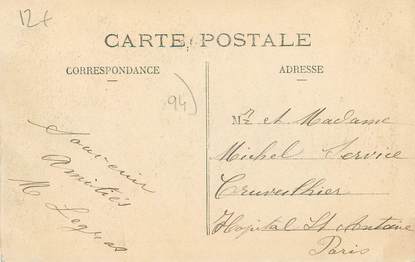 12+
CARTE POSTALE
CORRESPONDANCE
ADRESSE
94
Souvenir
Amitiés
M Legras
Mr et Madame
Michel Service
Cruveilhier
Hopital St Antoine
Paris